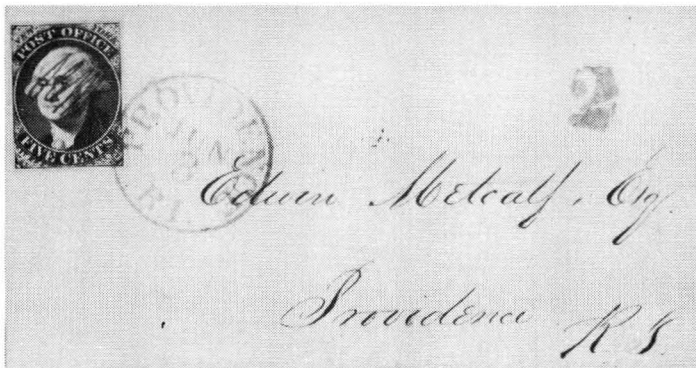 POST OFFICE
FIVE CENTS
PROVIDENCE
JUN
R.I.
2
Edwin Metcalf, Esq.
Providence
R I.